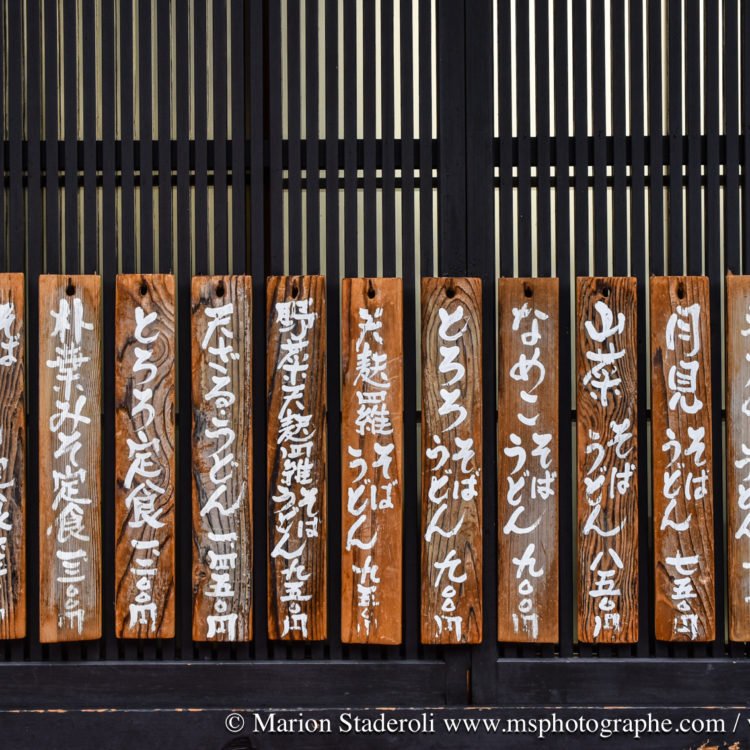 月見
そば
うどん
七五〇円
山菜
そば
うどん
八五〇円
なめこ
そば
うどん
九〇〇円
とろろ
そば
うどん
九〇〇円
天麩羅
そば
うどん
九五〇
野菜天麩羅
そば
うどん
九五〇円
天ざる・うどん
一四五〇円
とろろ定食
一二〇〇円
朴葉みそ定食
一三〇〇円
© Marion Staderoli www.msphotographe.com /